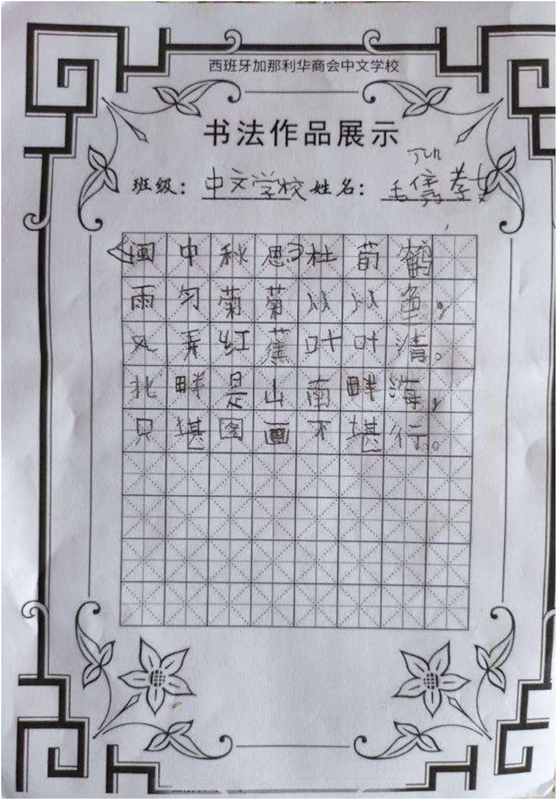 西班牙加那利华商会中文学校
书法作品展示
班级：中文学校 姓名：毛孝女
《闽中秋思》杜荀鹤
雨匀菊菊丛丛色，
风弄红蕉叶叶清。
北畔是山南畔海，
只堪图画不堪行。